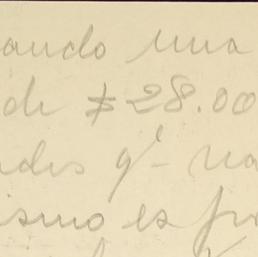 ando una
de $28.00
ndes q'
ismo es